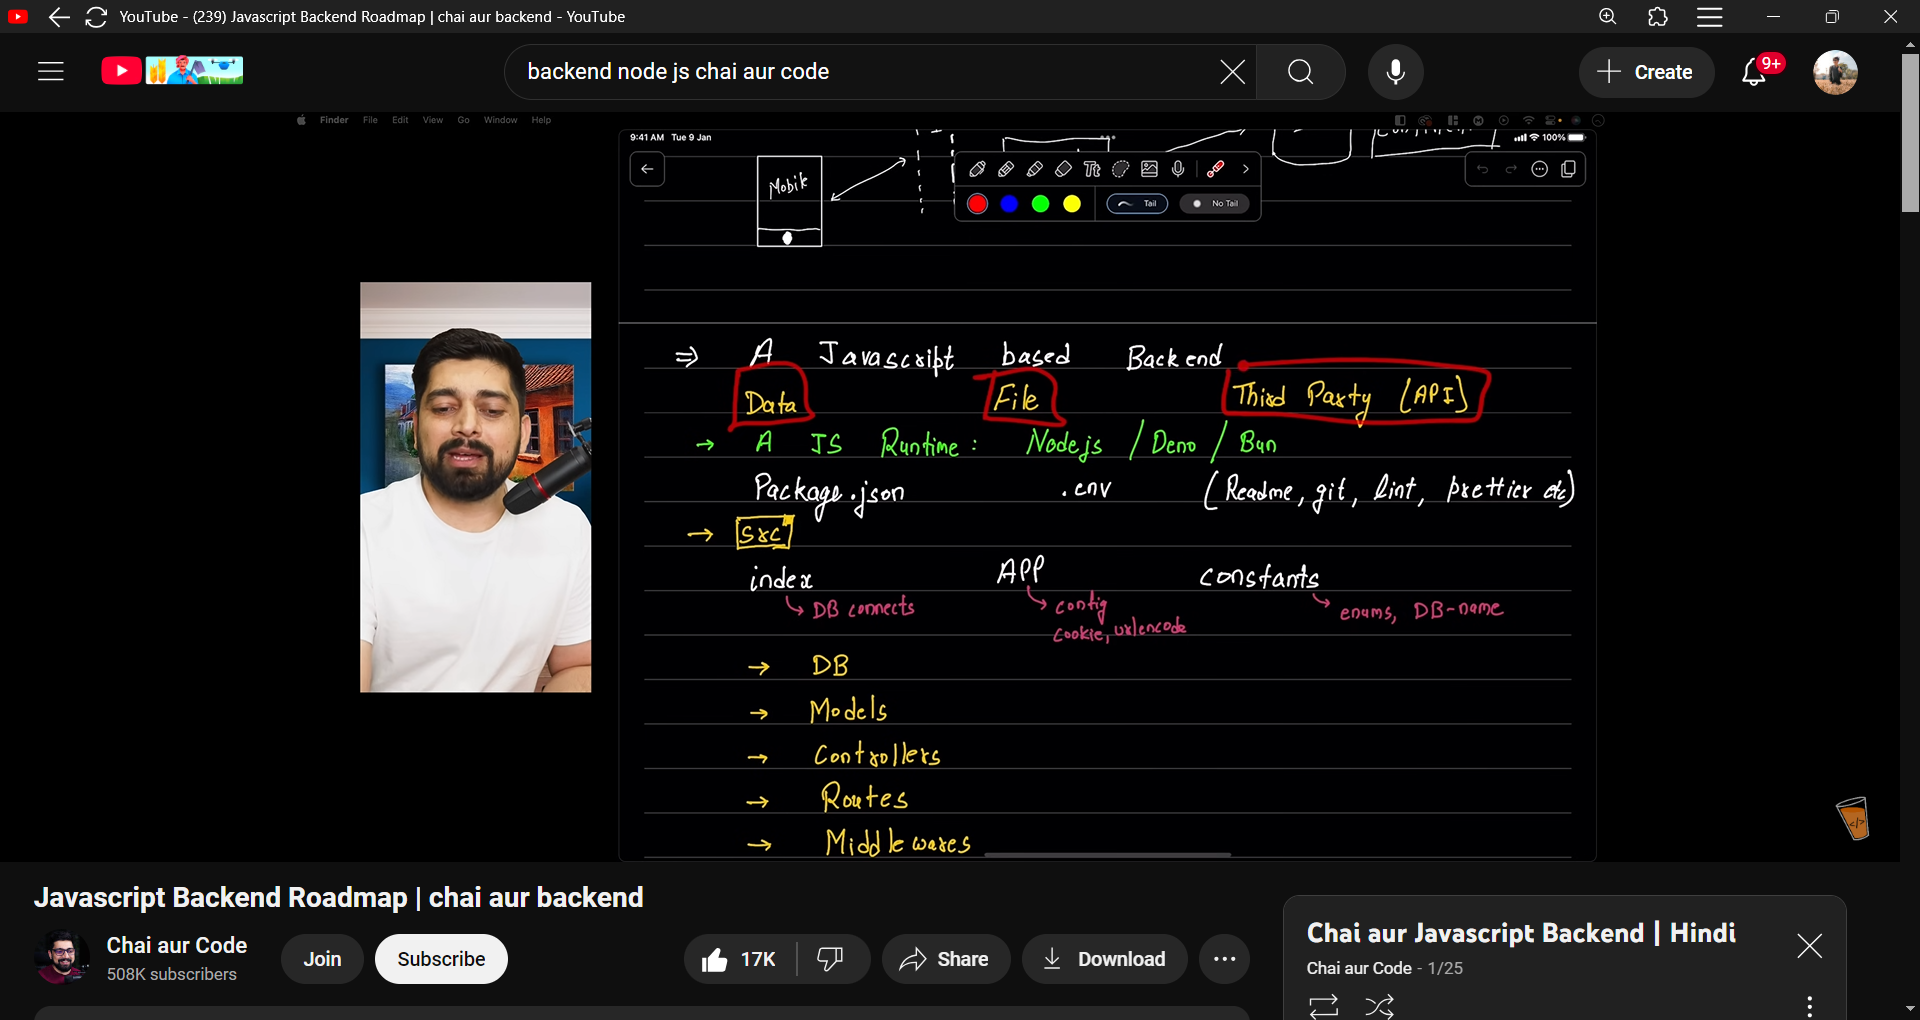 YouTube - (239) Javascript Backend Roadmap | chai aur backend - YouTube
backend node js chai aur code
Create
9+
Finder File Edit View Go Window Help
9:41 AM Tue 9 Jan
100%
Mobile
Tail
No Tail
⇒ A Javascript based Backend
Data File Third Party (API)
→ A JS Runtime : Nodejs / Deno / Bun
Package.json .env (Readme, git, lint, prettier etc)
→ src
index APP constants
↳ DB connects ↳ config ↳ enums, DB-name
cookie, urlencode
→ DB
→ Models
→ Controllers
→ Routes
→ Middlewares
</>
Javascript Backend Roadmap | chai aur backend
Chai aur Code
508K subscribers
Join
Subscribe
17K
Share
Download
Chai aur Javascript Backend | Hindi
Chai aur Code - 1/25